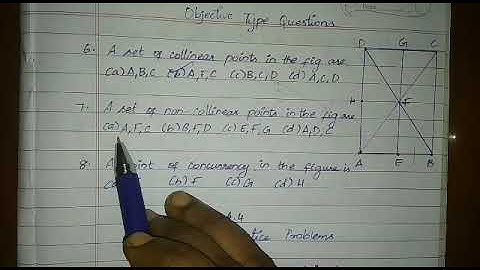 Objective Type Questions
6. A set of collinear points in the fig. are
(a) A,B,C (b) A,F,C (c) B,C,D (d) A,C,D
7. A set of non-collinear points in the figure are
(a) A,F,C (b) B,F,D (c) E,F,G (d) A,D,C
8. A point of concurrency in the figure is
(b) F (c) G (d) H
.4
tice Problems
D G C
H F
A E B